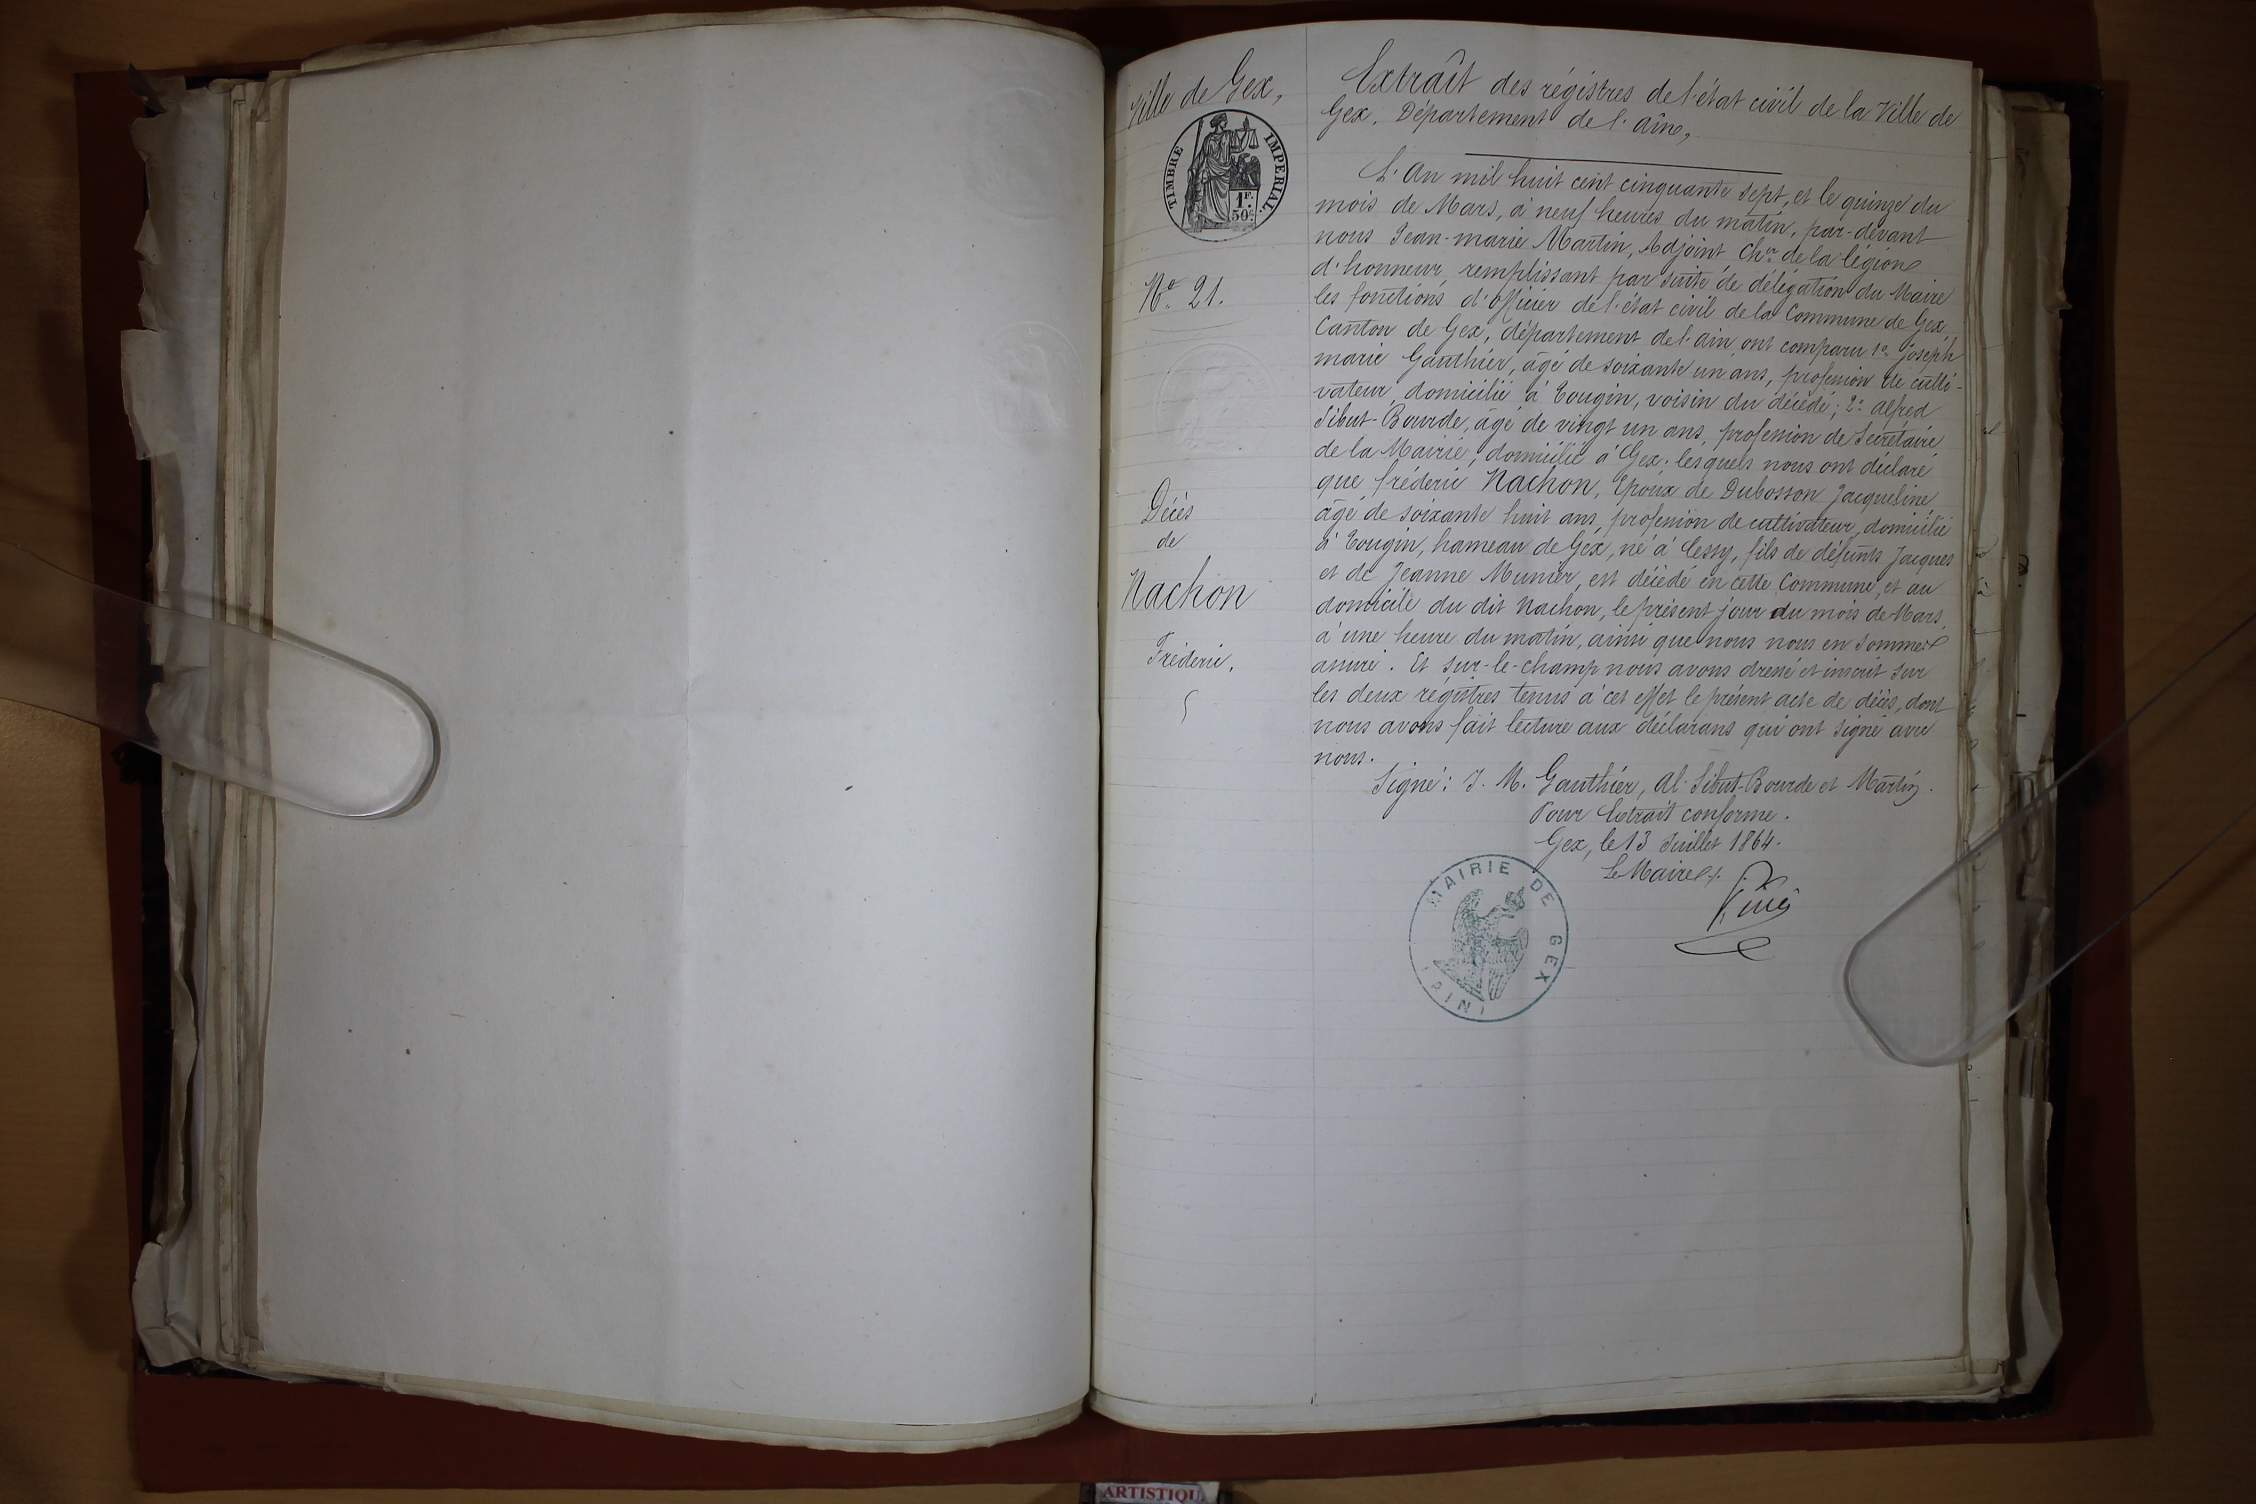 Ville de Gex,
TIMBRE IMPERIAL.
1F.
50c.
No. 21.
Décès
de
Nachon
Fréderic.
Extraît des régistres de l'état civil de la Ville de
Gex, Département de l'ain,
L'An mil huit cent cinquante sept, et le quinze du
mois de Mars, à neuf heures du matin, par-devant
nous Jean-marie Martin, Adjoint Cher. de la légion
d'honneur, remplissant par suite de délégation du Maire
les fonctions d'officier de l'état civil de la Commune de Gex,
Canton de Gex, département de l'ain, ont comparu 1o. joseph
marie Gauthier, âgé de soixante un ans, profession de culti-
vateur, domicilié à Tougin, voisin du décédé; 2o. alfred
Sibut-Bourde, âgé de vingt un ans, profession de Secrétaire
de la Mairie, domicilié à Gex. lesquels nous ont déclaré
que fréderic Nachon, Epoux de Dubosson Jacqueline,
âgé de soixante huit ans, profession de cultivateur, domicilié
à Tougin, hameau de Gex, né à Cessy, fils de défunts Jacques
et de Jeanne Munier, est décédé en cette Commune, et au
domicile du dit Nachon, le présent jour du mois de Mars,
à une heure du matin, ainsi que nous nous en sommes
assuré. Et sur-le-champ nous avons dressé et inscrit sur
les deux régistres tenus à cet effet le présent acte de décès, dont
nous avons fait lecture aux déclarans qui ont signé avec
nous.
Signé: J. M. Gauthier, Al. Sibut-Bourde et Martin.
Pour Extrait conforme.
Gex, le 13 Juillet 1864.
Le Maire
MAIRIE DE GEX
(AIN)
ARTISTIQU